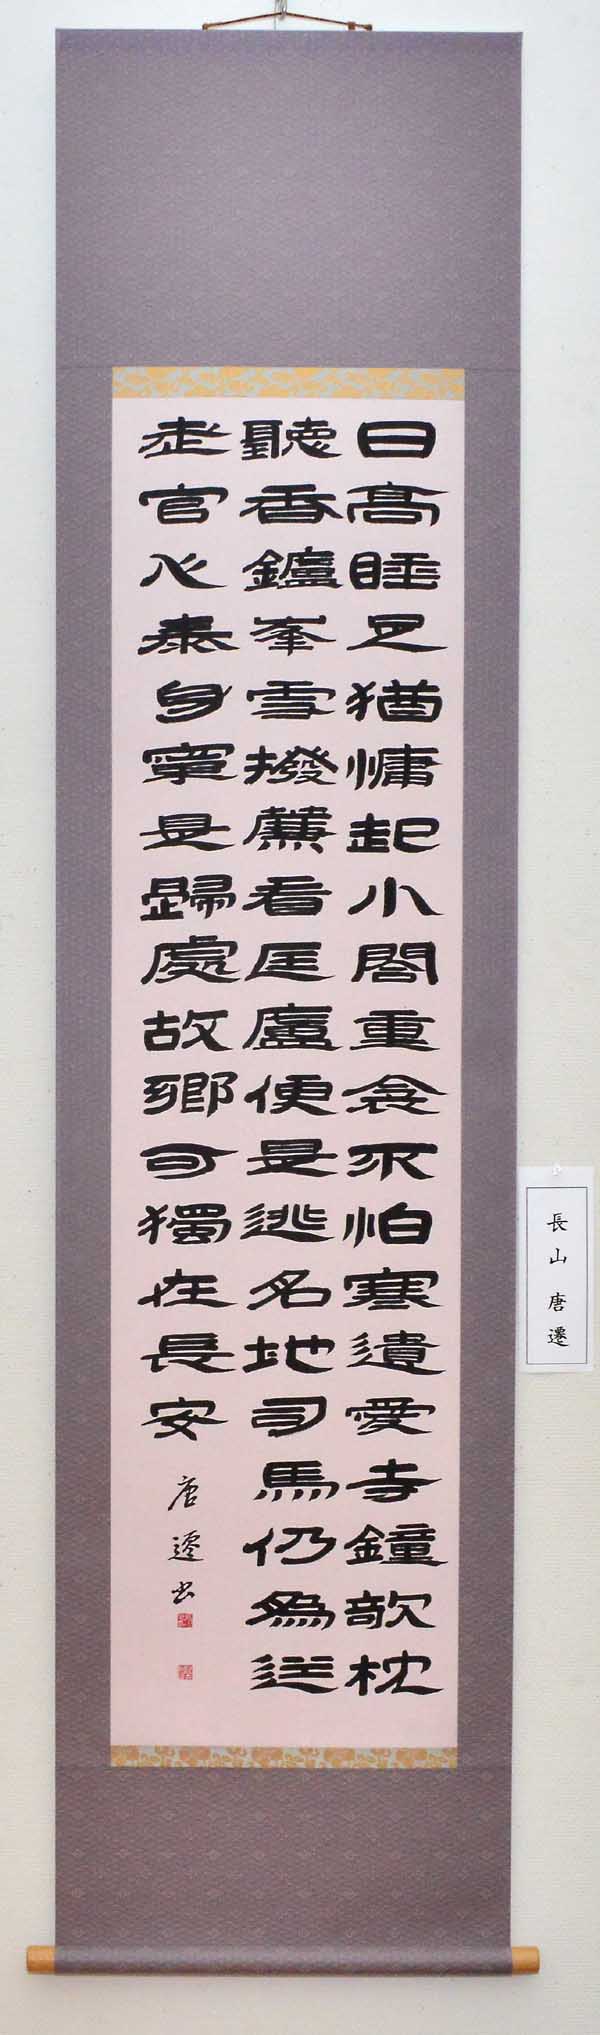 日高睡足猶慵起小閣重衾不怕寒遺愛寺鐘欹枕
聽香鑪峯雪撥簾看匡廬便是逃名地司馬仍為送
老官心泰身寧是歸處故鄉可獨在長安 唐遷書
長山 唐遷